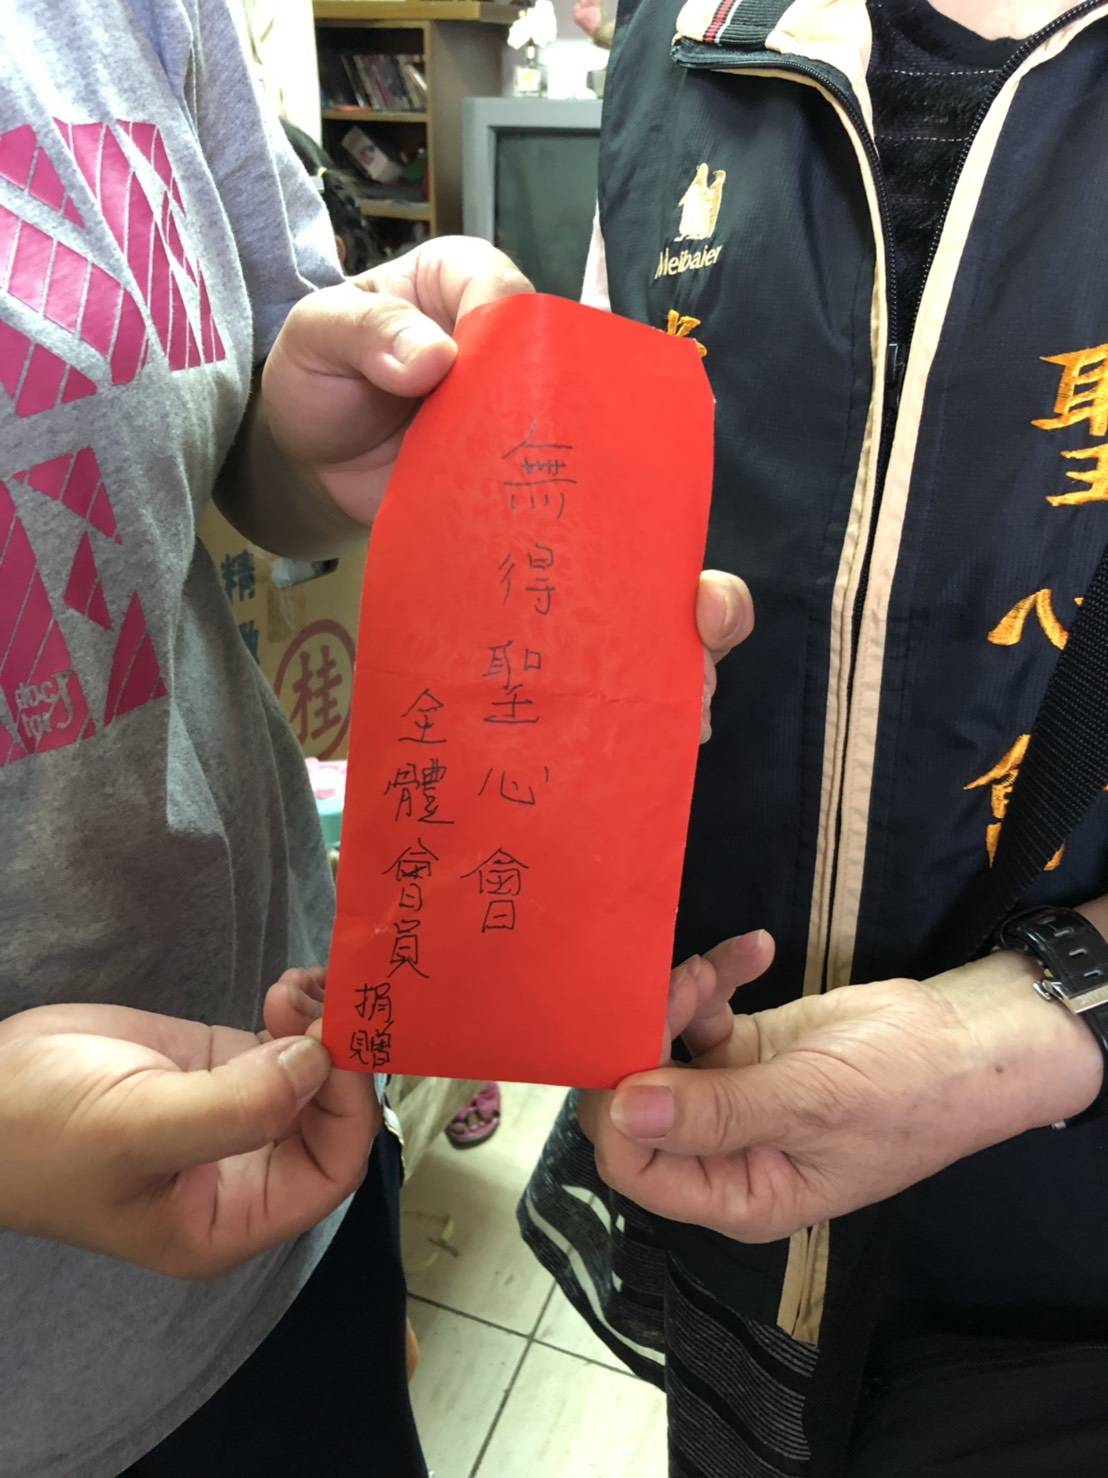 無得聖心會
全體會員
捐贈
Meibaier
聖心會
精
桂